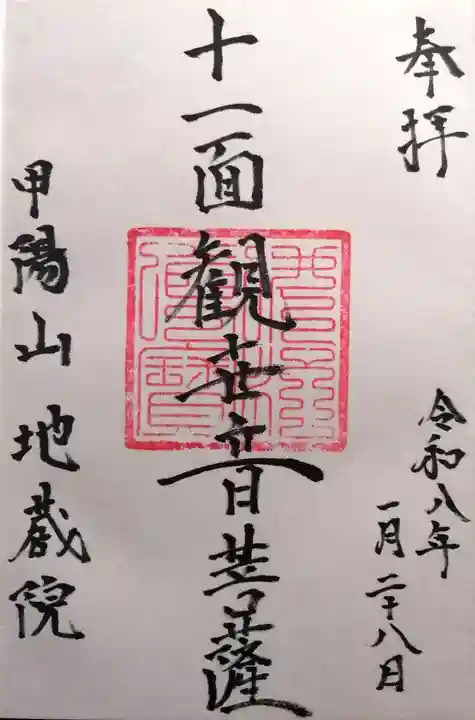 奉拝
令和八年
一月二十八月
十一面観世音菩薩
甲陽山地蔵院